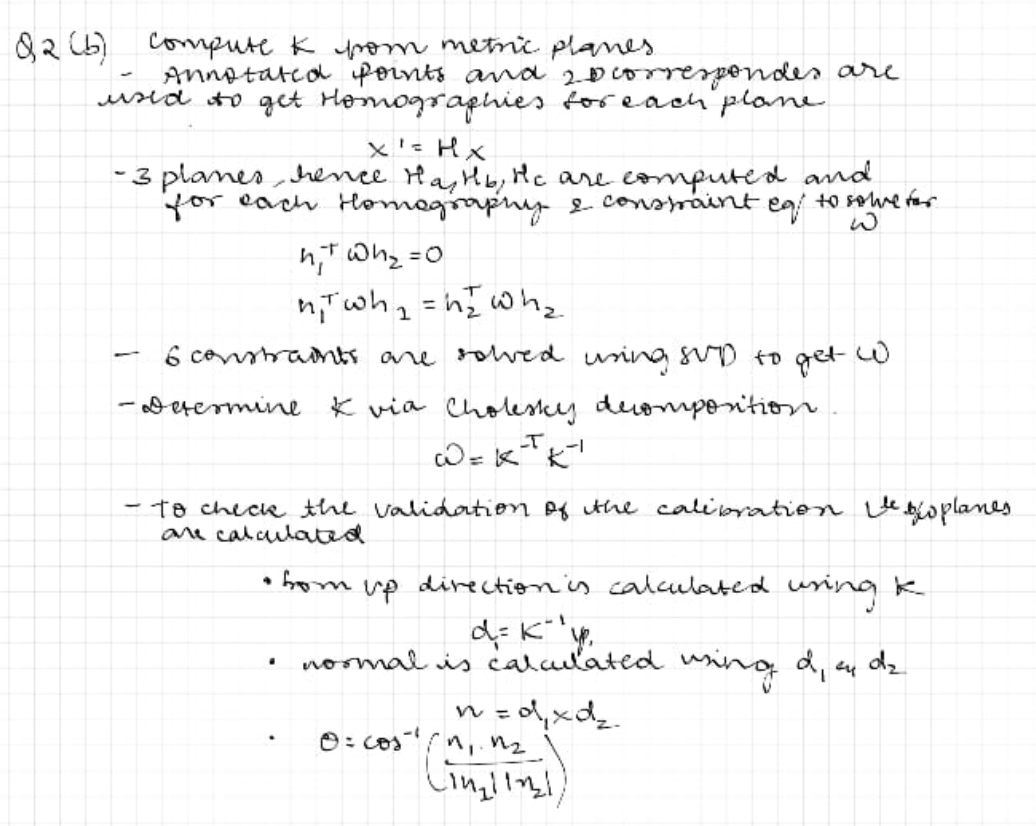 Q2 (b) Compute K from metric planes
- Annotated points and 2D correspondes are
used to get Homographies for each plane
x' = Hx
- 3 planes, hence Ha, Hb, Hc are computed and
for each Homography 2 constraint eq/ to solve for
ω
h₁ᵀ ω h₂ = 0
h₁ᵀ ω h₁ = h₂ᵀ ω h₂
- 6 constraints are solved using SVD to get ω
- Determine K via Cholesky decomposition.
ω = K⁻ᵀ K⁻¹
- To check the validation of the calibration planes
are calculated
• from vp direction is calculated using K
d₁ = K⁻¹ vp₁
• normal is calculated using d₁ & d₂
n = d₁ × d₂
• θ = cos⁻¹ (n₁ . n₂ / |n₁| |n₂|)